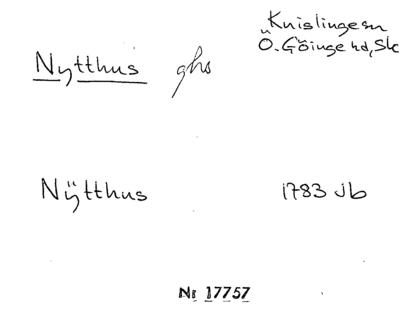 Knislinge sn
Nytthus ghs Ö. Göinge hd, Sk
Nÿtthus 1783 Jb
Nr 17757